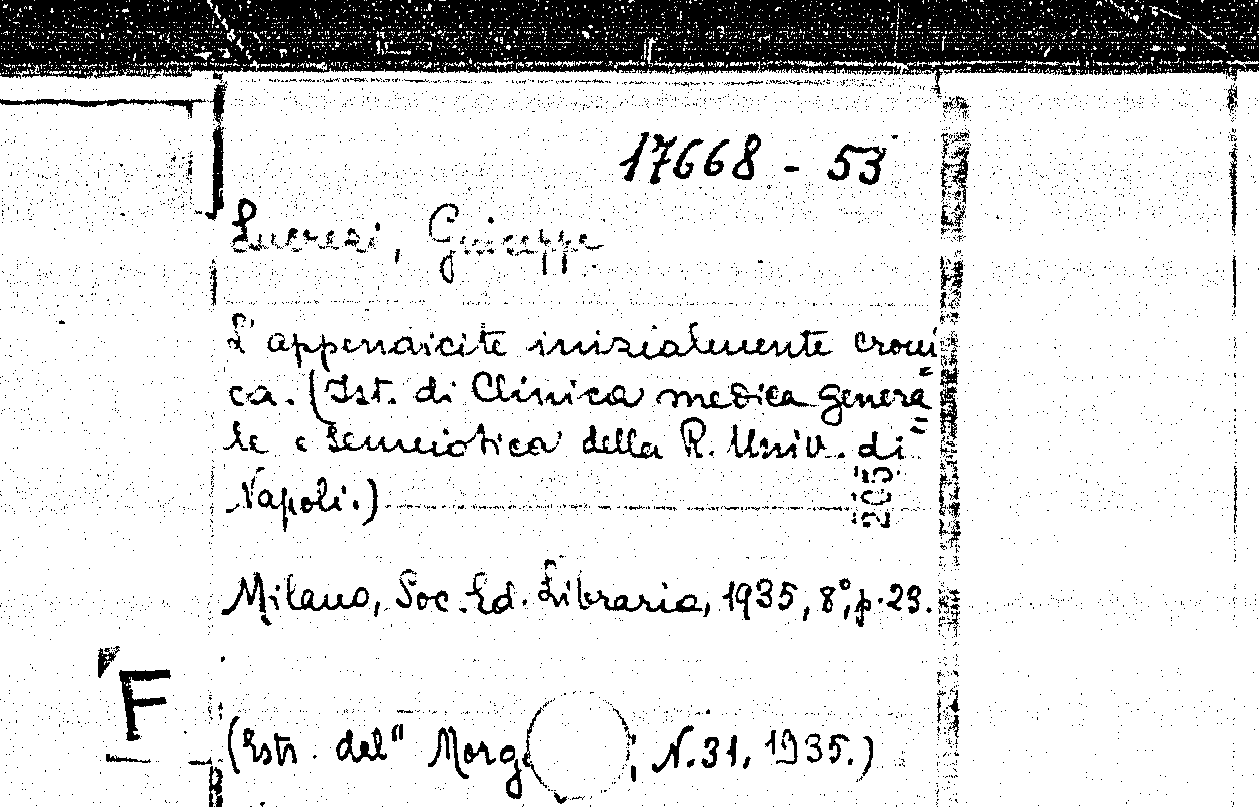 17668 - 53
Lucresi, Giuseppe
L'appendicite inizialmente croni
ca. (Ist. di Clinica medica genera=
le e Semeiotica della R. Univ. di=
Napoli.)
205
Milano, Soc. Ed. Libraria, 1935, 8°, p. 23.
F
(Estr. dal "Morg , N. 31, 1935.)